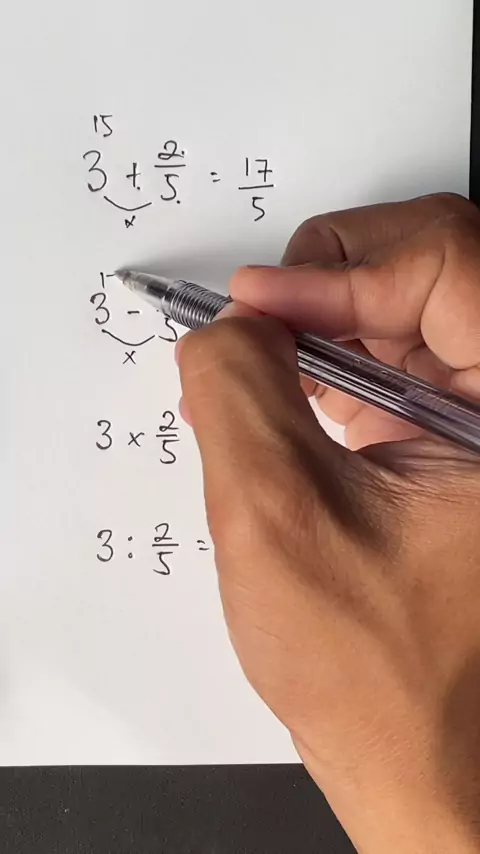 15
3 + 2/5 = 17/5
×
3 - 5
×
3 × 2/5
3 : 2/5 =